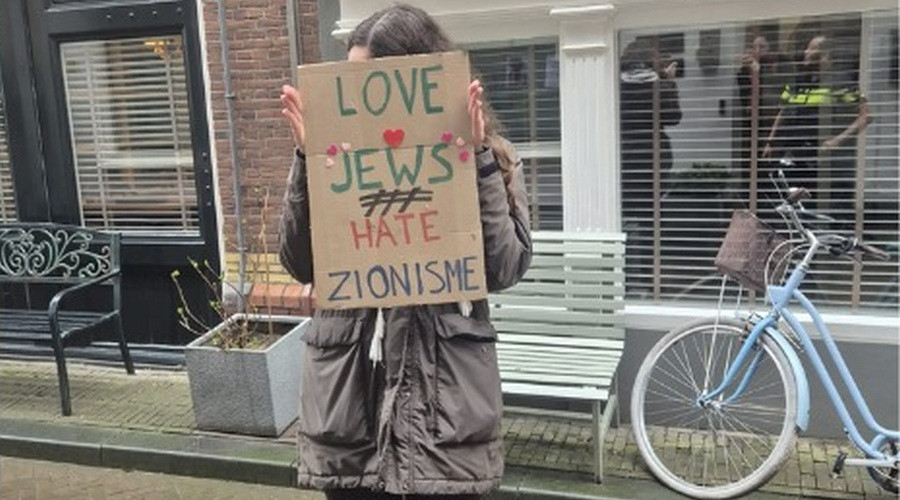 LOVE
JEWS
HATE
ZIONISME